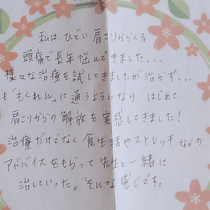 私は、ひどい肩こりからくる
頭痛で長年悩んできました...
様々な治療を試してきましたが治らず...
「もくれん」に通うようになり、はじめて
肩こりからの解放を実感できました!
治療だけでなく食生活やストレッチなどの
アドバイスをもらって先生と一緒に
治していった。そんな感じです。